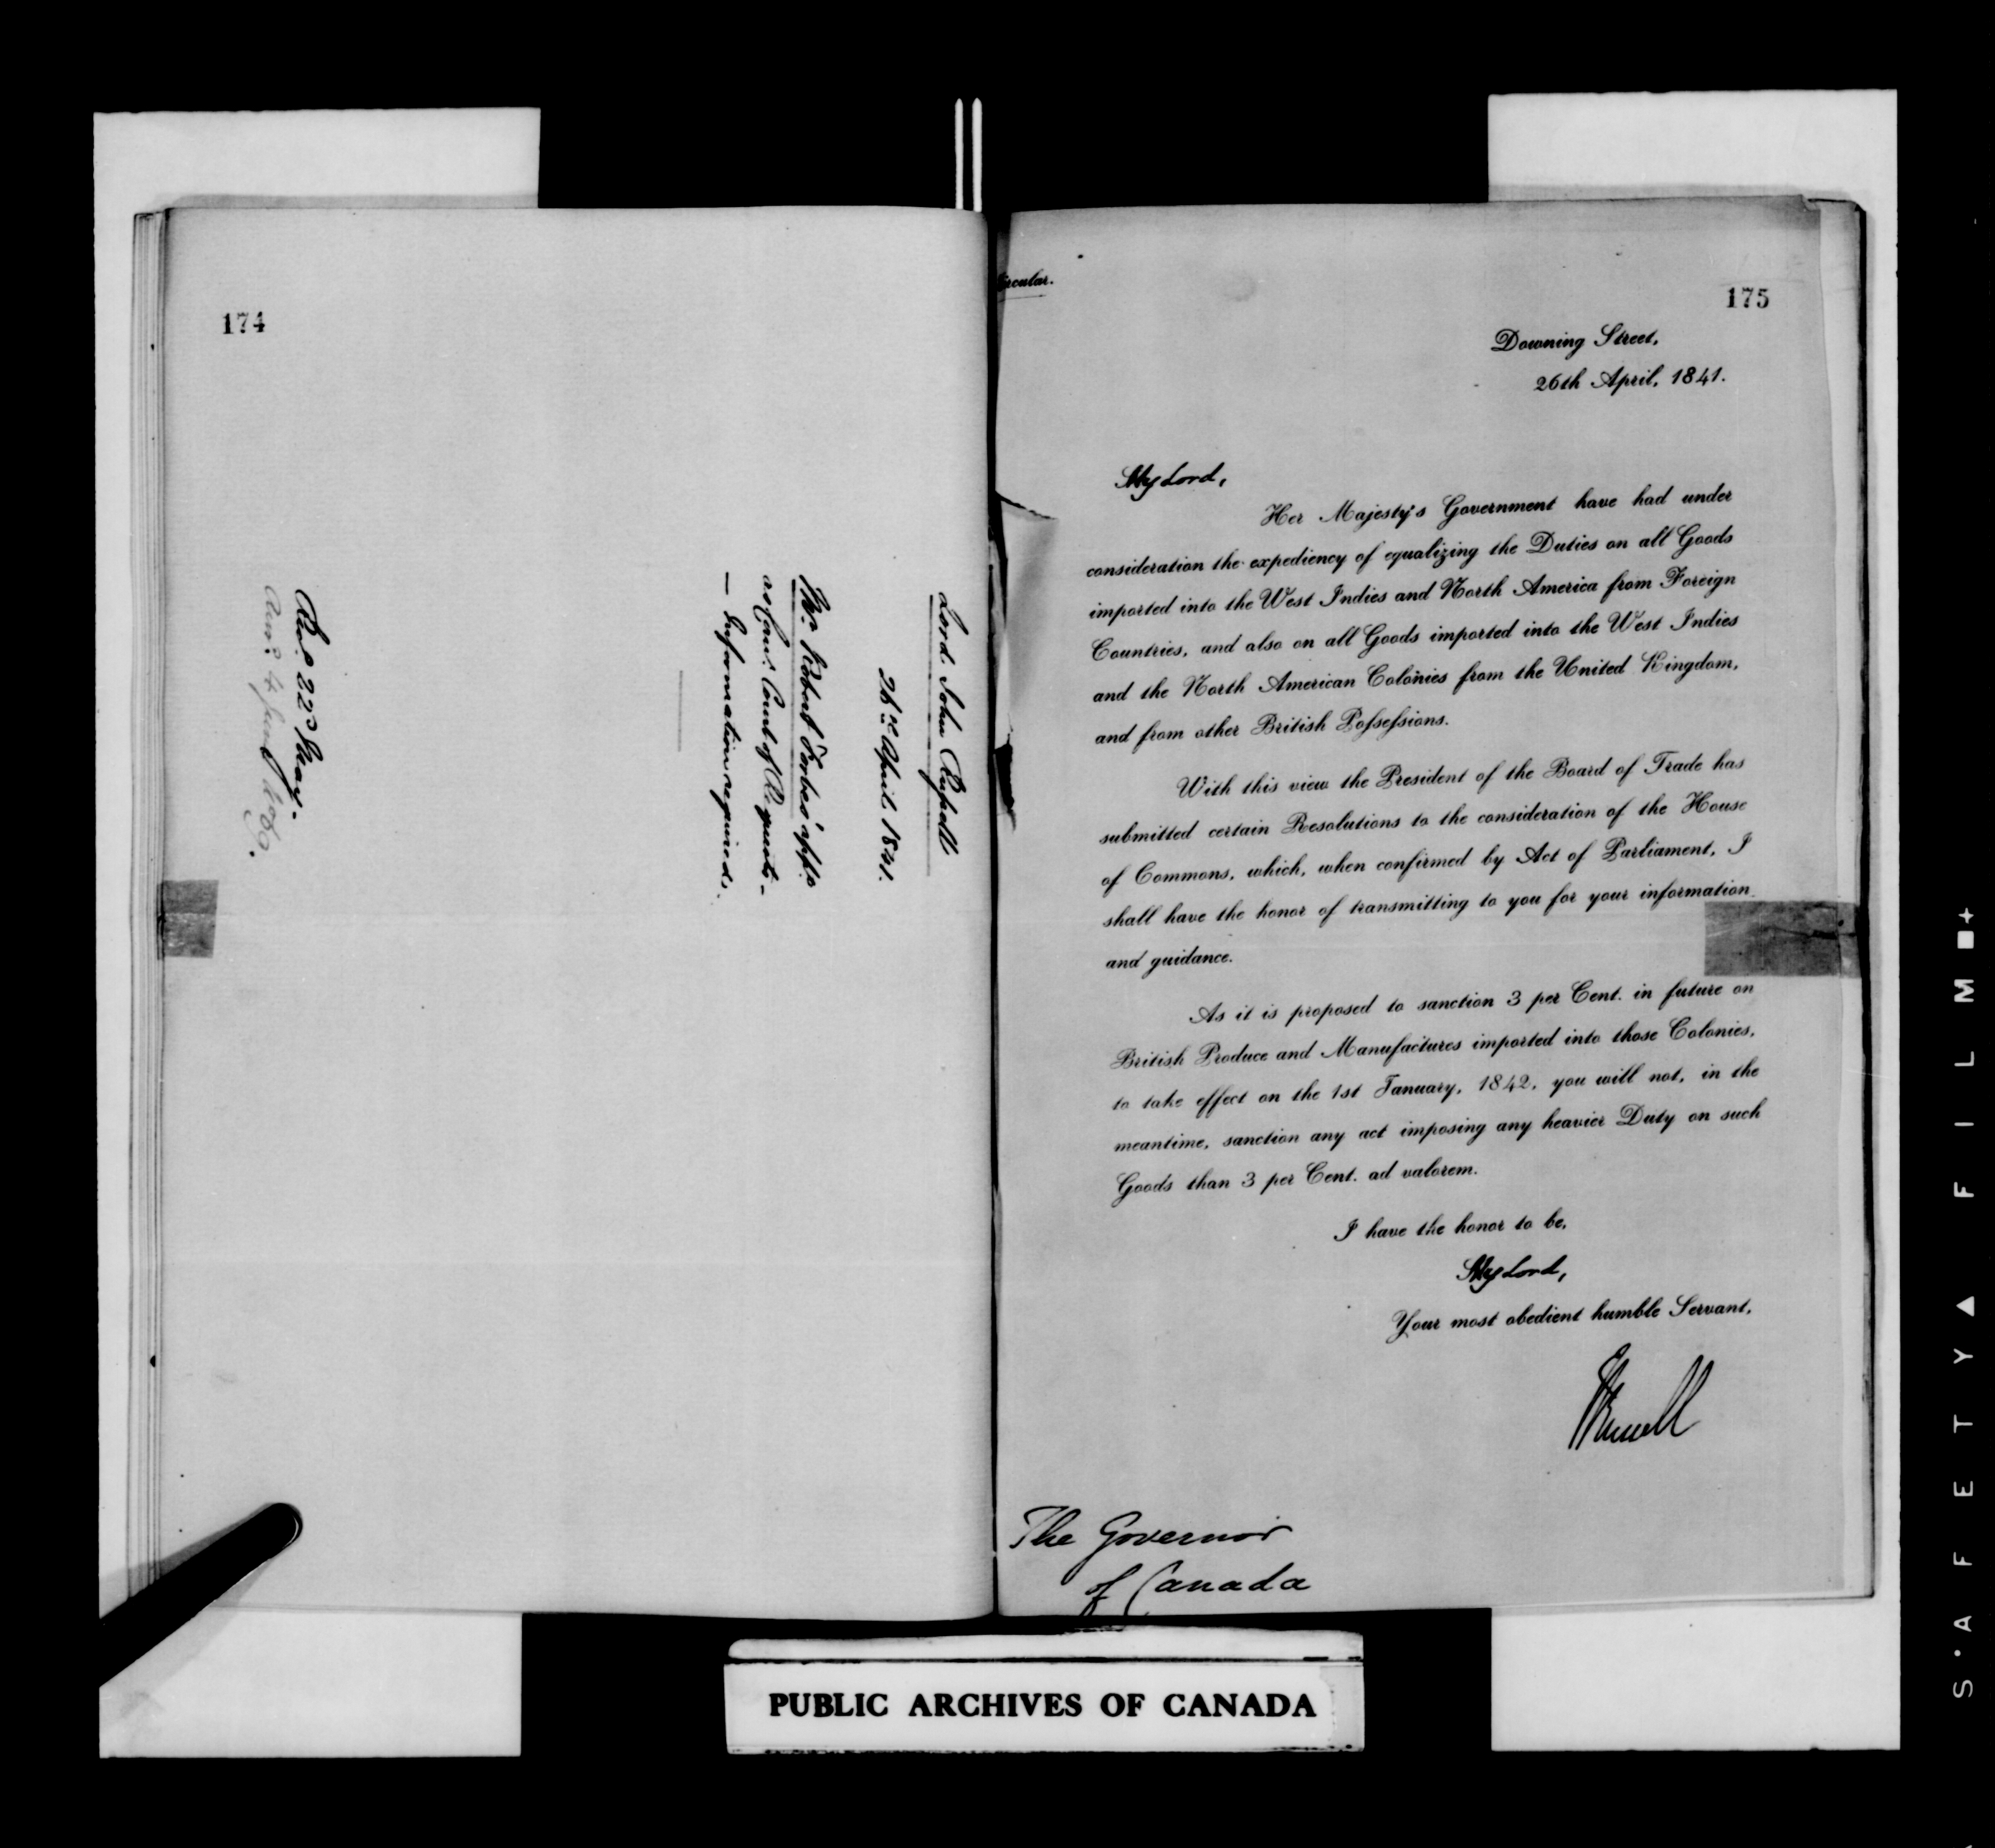 174
Lord John Rufsell
April 1841.
Mr. Robert Forbes' appt.
as Comr. Court of Requests -
— Information required.
Recd. 22d May.
Ansd. 4 June
Circular.
175
Downing Street,
26th April, 1841.
My Lord,
Her Majesty's Government have had under
consideration the expediency of equalizing the Duties on all Goods
imported into the West Indies and North America from Foreign
Countries, and also on all Goods imported into the West Indies
and the North American Colonies from the United Kingdom,
and from other British Pofsefsions.
With this view the President of the Board of Trade has
submitted certain Resolutions to the consideration of the House
of Commons, which, when confirmed by Act of Parliament, I
shall have the honor of transmitting to you for your information
and guidance.
As it is proposed to sanction 3 per Cent. in future on
British Produce and Manufactures imported into those Colonies,
to take effect on the 1st January, 1842, you will not, in the
meantime, sanction any act imposing any heavier Duty on such
Goods than 3 per Cent. ad valorem.
I have the honor to be,
My Lord,
Your most obedient humble Servant,
JRussell
The Governor
of Canada
PUBLIC ARCHIVES OF CANADA
S'AFETY▲FILM■+